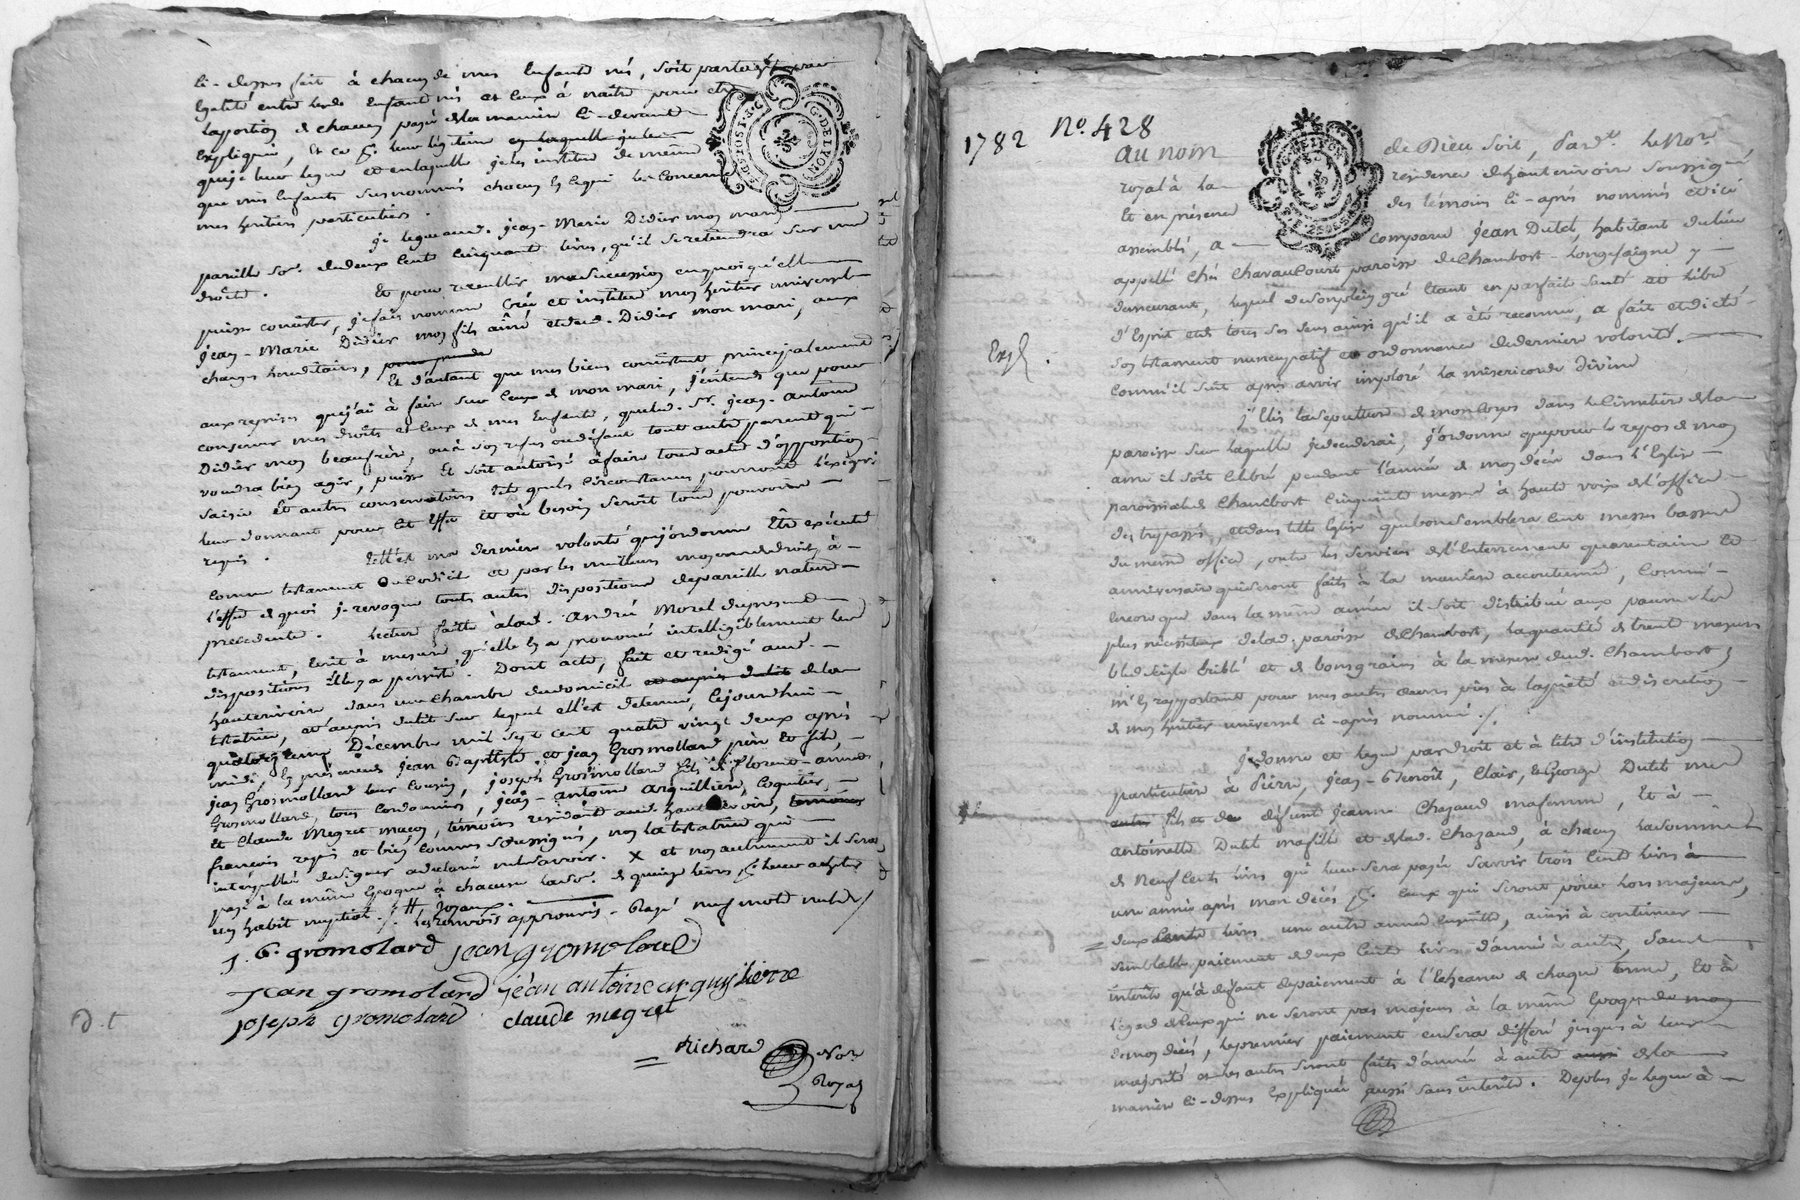 ci-dessus fait à chacun de mes Enfants nés, soit partagé par
Egalité entre lesde Enfant nés et Ceux à naitre pour etre
laportion de chacun payée dela maniere Ci-devant
Expliquée, Et ce pr. leur légitime
queje leur legue et enlaquelle jeles institue de même
que mes Enfants susnommés chacun En cequi le Concerne
mes héritiers particuliers.
je legue aud. jean-Marie Didier mon mari
pareille Som. dedeux Cent Cinquante livres, qu'il Seretiendra Sur mes
droits. Et pour recueillir masuccession enquoi qu'elle
puisse consister, jefais nomme Crée et institue mon heritier universel
jean-Marie Didier mon fils aîné etdud. Didier mon mari, aux
charges héréditaires,
Et d'autant que mes biens consistent principalement
aux reprises quej'ai à faire sur Ceux de mon mari, j'entends que pour
conserver mes droits et Ceux de mes Enfants, queled. Sr. jean-Antoine
Didier mon beaufrère, ou à son refus oudéfaut tout autre parent qui
voudra bien agir, puisse Et soit autorisé à faire tous actes d'opposition
saisie Et autres conservatoires tels queles Circonstances pourroient l'exiger
leur donnant pour Cet Effet Et où besoin Seroit tous pouvoirs
requis. Telle est ma derniere volonté quej'ordonne Etre exécutée
comme testament Ou Codicil et par les meilleurs moyens dedroits, à
l'effet de quoi je revoque toutes autres dispositions depareille nature
précédente. Lecture faite àlad. André Morel dupresent
testament, Ecrit à mesure qu'elle En a prononcé intelligiblement les
dispositions Elle y a persisté. Dont acte, fait et redigé aud.
hauterivoire dans une Chambre dudomicile et auprès dulit dela
testatrice, et auprès dulit sur lequel elle est detenue, Cejourdhui
quatorzieme Décembre mil sept cent quatre vingt deux après
midi, En présence de jean Baptiste, et jean Grosmollard père Et fils,
jean Grosmollard leur Cousin, joseph Grosmollard fils de
Grosmollard, tous Cordonniers, jean-antoine Arquilliere, Coquetier,
Et Claude Megret maçon, témoins residant aud. hauterivoire, temoins
françois requis et bien Connus Soussignés, non la testatrice qui
interpellée designer adeclaré nele savoir. X et non autrement il sera
payé à la même Epoque à chacune lasom. de quinze livres, pr. leur acheter
un habit nuptial. /. # joyaux.
les renvois approuvés. Rayé neuf mots nuls /
J. B. gromolard jean gromolard
jean gromolard jean antoine arquilliere
joseph gromolard claude megret
Richard Nore
Royal
D. t
G. DE LYON
1782 No. 428
au nom de Dieu Soit, Pardt. LeNore
royal à la residence dehauterivoire Soussigné
Et en présence des témoins Ci-après nommés et ici
assemblés, a Comparu jean Dutel, habitant dulieu
appellé chés Chavaucourt paroisse de Chambost-longesaigne y
demeurant, lequel desonplein gré Etant en parfaite Santé et libre
d'Esprit etde tous ses sens ainsi qu'il a été reconnu, a fait et dicté
Son testament nuncupatif et ordonnance dederniere volonté.
Comm'il suit après avoir imploré la miséricorde divine
Exp.
j'Elis lasepulture de moncorps dans le Cimetiere dela
paroisse sur laquelle jedécederai, j'ordonne que pour le repos de mon
ame il soit Célébré pendant l'année de mon décès dans l'Eglise
paroissiale de Chambost Cinquante messes à haute voix del'office
des trepassés, et dans telle Eglise que bon semblera Cent messes basses
du même office, outre les Services del'Enterrement quarantaine Et
anniversaire qui seront faits à la maniere accoutumée, Comme
Encore que dans la même année il soit distribué aux pauvres les
plus nécessiteux delad. paroisse de Chambost, la quantité de trente mesures
bled seigle Criblé et de bons grains à la mesure dud. Chambost,
m'En rapportant pour mes autres œuvres pies à lapieté et discretion
de mon héritier universel ci-après nommé. /.
je donne et legue par droit et à titre d'institution
particuliere à Pierre, jean-Benoît, Clair, & George Dutel mes
fils et de defunte jeanne Chazaud mafemme, Et à
antoinette Dutel mafille et delad. Chazaud, à chacun lasomme
de neuf Cents livres qui leur sera payée Savoir trois Cent livres
une année après mon décès pr. Ceux qui seront pour lors majeurs,
deux Cents livres une autre année Ensuitte, ainsi à continuer
semblable paiement dedeux Cent livres d'année à autre, Sans
interêts qu'à défaut depaiement à l'Echeance de chaque terme, Et à
l'égard de Ceux qui ne seront pas majeurs à la même Epoque de mon
demon décès, lepremier paiement en sera differé jusques à leur
majorité et les autres seront faits d'année à autre aussi dela
maniere Ci-dessus Expliquée aussi sans interêts. Deplus je legue à